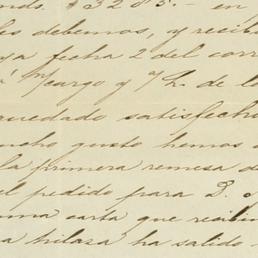 nds. $3285.- en
les debemos, y recib
ya fecha 2 del corr
m/cargo y n/L. de la
quedado satisfecho
ucho gusto hemos
la primera remesa de
el pedido para D.
una carta que recib
a hilaza ha salido